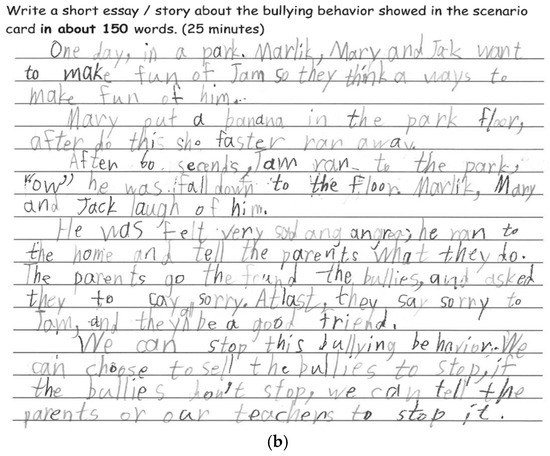 Write a short essay / story about the bullying behavior showed in the scenario
card in about 150 words. (25 minutes)
One day, in a park. Marlik, Mary and Jak want
to make fun of Jam so they think a ways to
make fun of him.
Mary put a banana in the park floor,
after do this she faster ran away.
After 60 secends, Jam ran to the park,
"ow" he was fall down to the floor. Marlik, Mary
and Jack laugh of him.
He was felt very sad and angrea; he ran to
the home and tell the parents what they do.
The parents go the the bullies, and asked
they to say sorry. At last, they say sorry to
Jam, and they'll be a good friend.
We can stop this bullying behavior. We
can choose to tell the bullies to stop, if
the bullies don't stop, we can tell the
parents or our teachers to stop it.
(b)